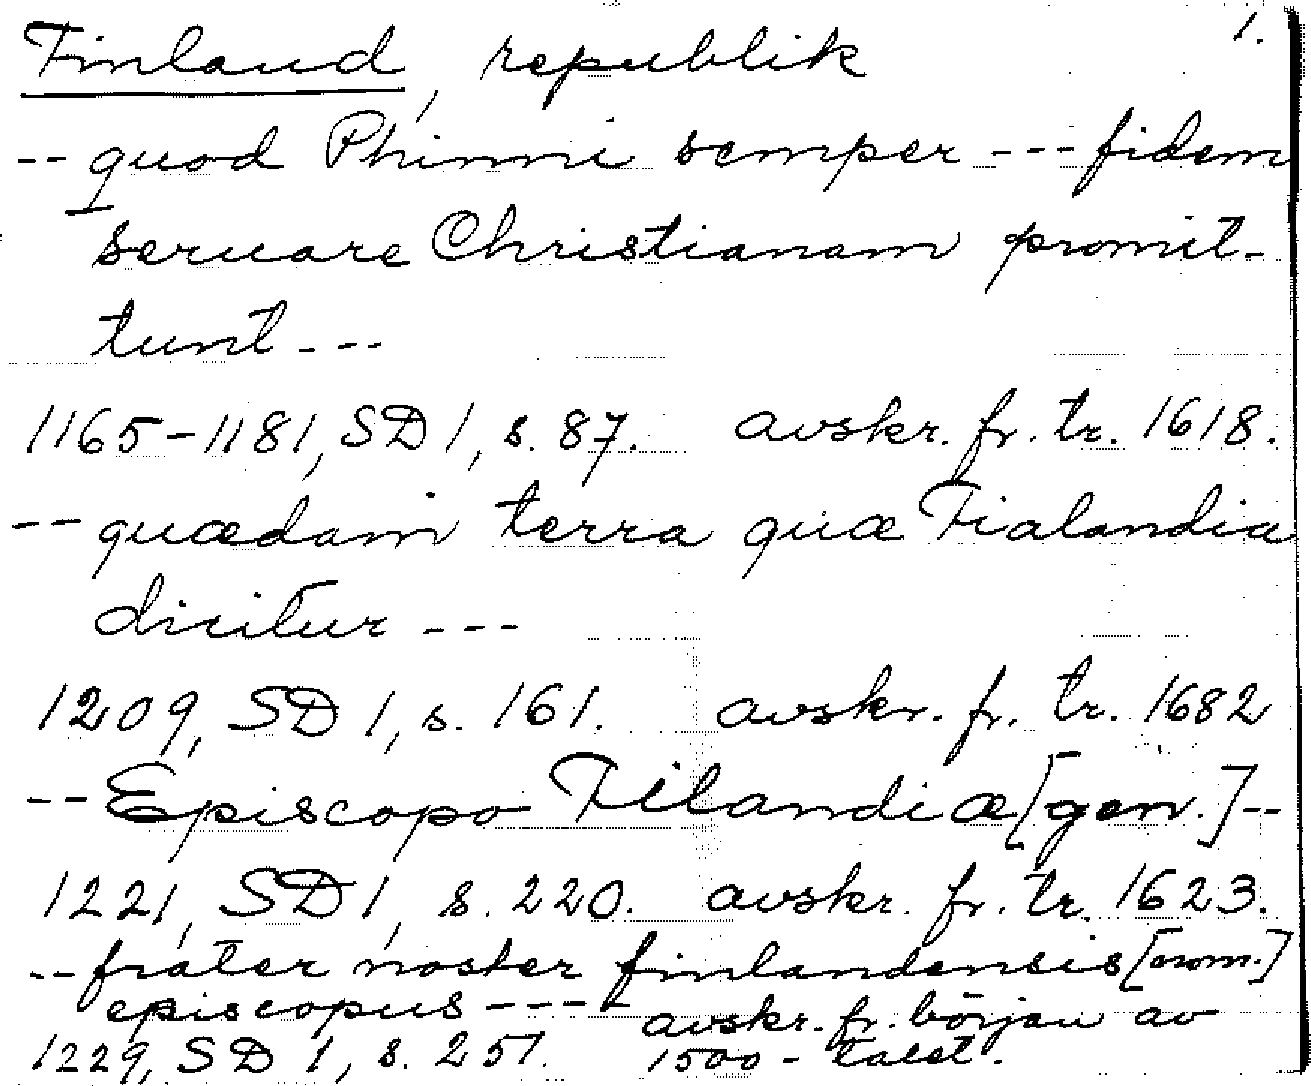 1.
Finland, republik
-- quod Phinni semper --- fidem
seruare Christianam promit-
tunt ---
1165-1181, SD 1, s. 87. avskr. fr. tr. 1618.
-- quædam terra quæ Fialandia
dicitur ---
1209, SD 1, s. 161. avskr. fr. tr. 1682
-- Episcopo Filandiæ [gen.] --
1221, SD 1, s. 220. avskr. fr. tr. 1623.
-- frater noster finlandensis [nom.]
episcopus --- avskr. fr. början av
1229, SD 1, s. 251. 1500-talet.